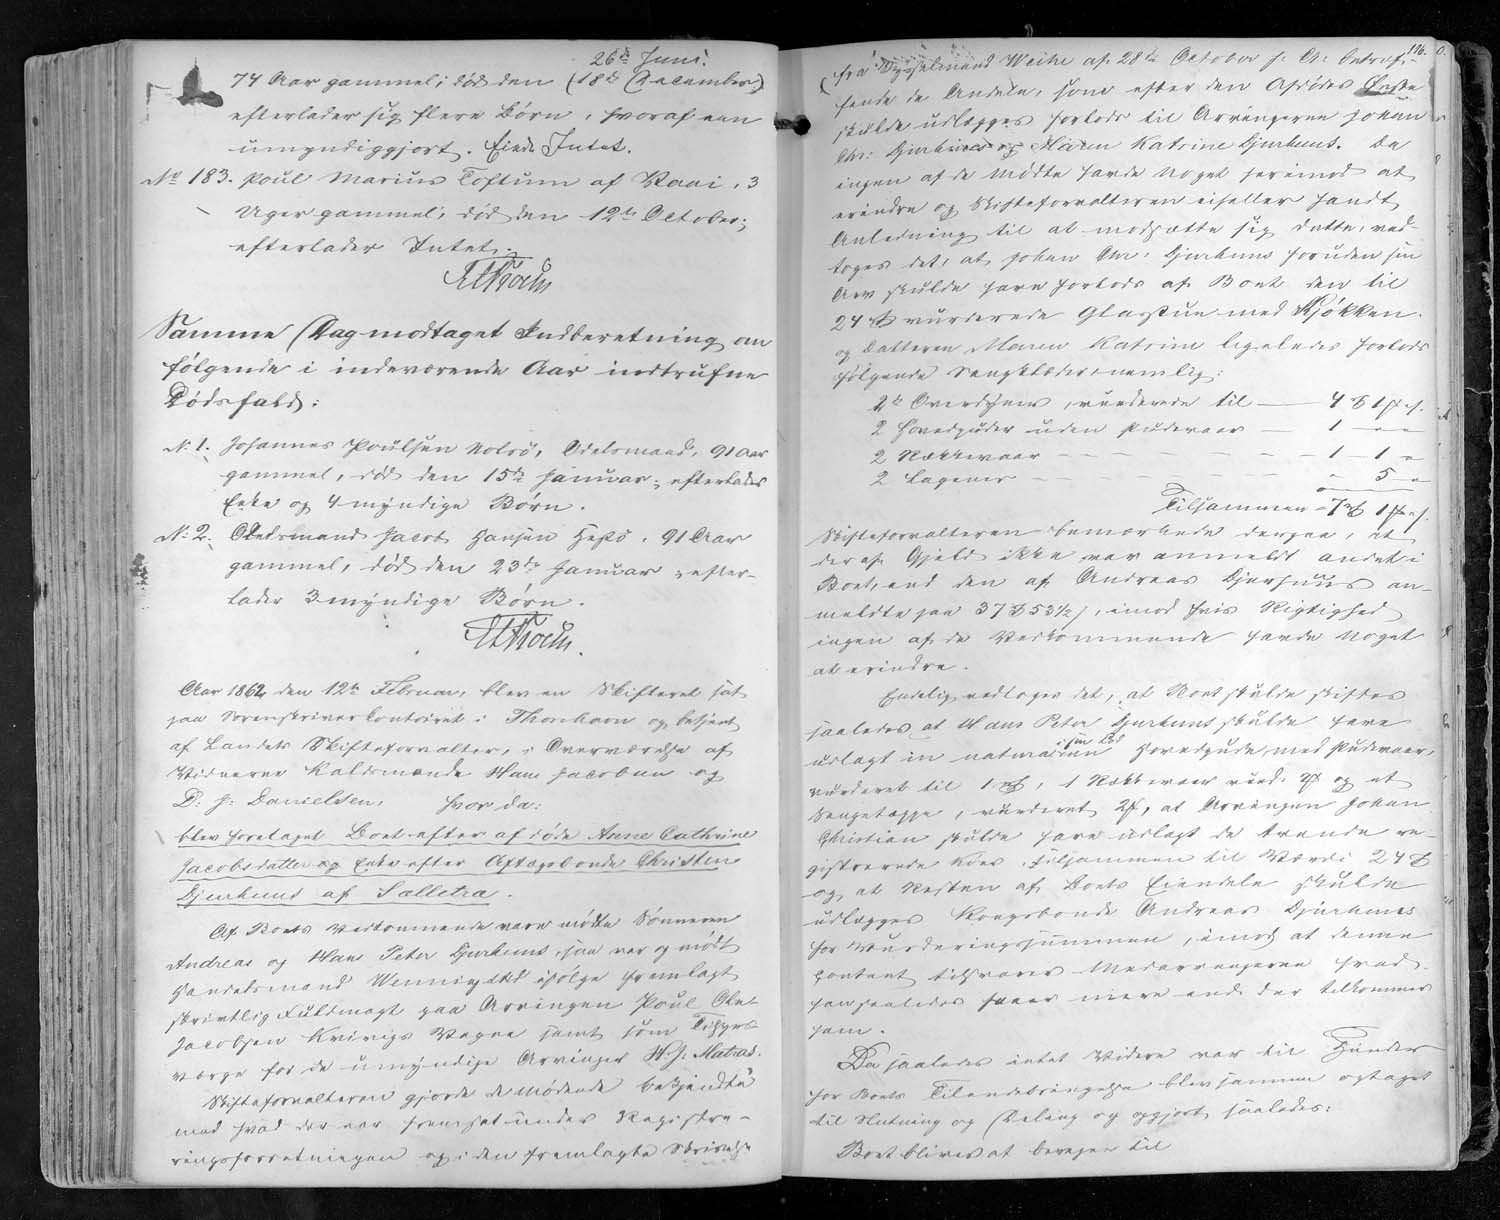 26de Juni.
74 Aar gammel; død den (18de December)
efterlader sig flere Børn, hvoraf een
umyndiggjort. Eiede Intet.
No 183. Poul Marius Toftum af Vaai, 3
Uger gammel; død den 12te October;
efterlader Intet.
Samme Dag modtaget Indberetning om
følgende i indeværende Aar indtrufne
Dødsfald:
No 1. Johannes Poulsen Nolsö, Odelsmand, 91 Aar
gammel, død den 15de Januar; efterlader
Enke og 4 myndige Børn.
No 2. Odelsmand Jacob Hansen Hestö, 91 Aar
gammel, død den 23de Januar; efter-
lader 3 myndige Børn.
Aar 1862 den 12te Februar, blev en Skifteret sat
paa Sorenskriverkontoiret i Thorshavn og betjent
af Landets Skifteforvalter, i Overværelse af
Vidnerne Kaldsmænde Hans Jacobsen og
D: J: Danielsen, hvor da:
blev foretaget Boet efter afdøde Anne Cathrine
Jacobsdatter og Enke efter Aftægsbonde Christen
Djurhuus af Sælletræ.
Af Boets Vedkommende vare mødte Sønnerne
Andreas og Hans Peter Djurhuus, saa var og mødt
Handelsmand Wenningsted ifølge fremlagt
skriftlig Fuldmagt paa Arvingen Poul
Jacobsen Kvivigs Vegne samt som Tilsyns-
værge for de umyndige Arvinger H. J. Matras.
Skifteforvalteren gjorde de Mødende bekjendte
med hvad der var fremsat under Registre-
ringsforretningen og i den fremlagte Skrivelse
116.
(fra Sysselmand Weihe af 28de October f. A: betræf-
fende de Andele, som efter den Afdødes Ønske
skulde udlægges forlods til Arvingerne Johan
Chr: Djurhuus og Maren Katrine Djurhuus. Da
ingen af de Mødte havde Noget herimod at
erindre og Skifteforvalteren eiheller fandt
Anledning til at modsætte sig dette, ved-
toges det, at Johan Chr: Djurhuus foruden sin
Arv skulde have forlods af Boet den til
24 vurderede Glasstue med Kjøkken.
og Datteren Maren Katrine ligeledes forlods
følgende Sengklæder, nemlig:
2de Overdyner, vurderede til — 4
2 Hovedpuder uden Pudevaar — 1 - -
2 Rækkevaar — 1 - 1 -
2 Lagener — - 5 -
Tilsammen 7
Skifteforvalteren bemærkede derpaa, at
der af Gjeld ikke var anmeldt andet i
Boet, end den af Andreas Djurhuus an-
meldte paa 37 53 1/2 , imod hvis Rigtighed
ingen af de Vedkommende havde Noget
at erindre.
Endelig vedtoges det, at Boet skulde skiftes
saaledes, at Hans Peter Djurhuus skulde have
udlagt in natura Hovedpude med Pudevaar,
vurderet til 1 , 1 Rækkevaar vurd: og et
Sengetæppe, vurderet 2 , at Arvingen Johan
Christian skulde have udlagt de trende re-
gistrerede Køer, tilsammen til Værdi 24
og at Resten af Boets Eiendele skulde
udlægges Kongsbonde Andreas Djurhuus
for Vurderingssummen, imod at denne
contant tilsvarer Medarvingerne hvad
han saaledes faaer mere end der tilkommer
ham.
Da saaledes intet Videre var til Hinder
for Boets Tilendebringelse blev samme optaget
til Slutning og Deling og opgjort saaledes:
Boet blives at beregne til